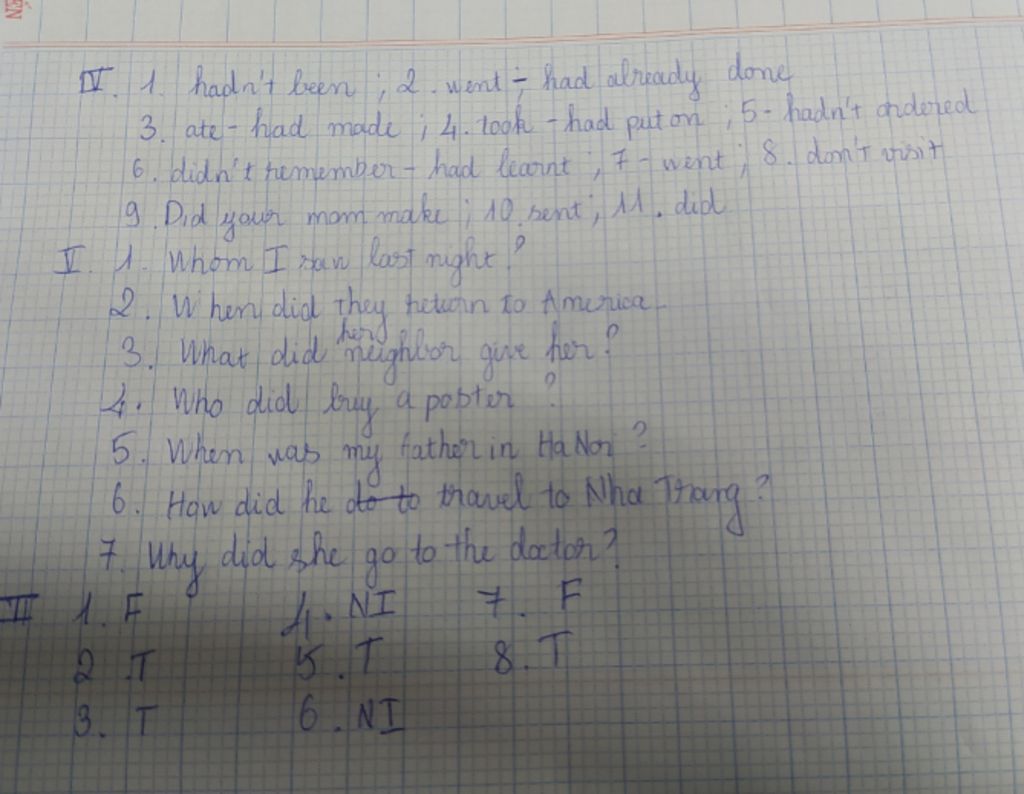 IV. 1. hadn't been ; 2. went - had already done
3. ate - had made ; 4. took - had put on ; 5 - hadn't ordered
6. didn't remember - had learnt ; 7 - went ; 8. don't visit
9. Did your mom make ; 10. sent ; 11. did
V. 1. Whom I saw last night ?
2. When did they return to America
her
3. What did neighbor give her ?
4. Who did buy a poster ?
5. When was my father in Ha Noi ?
6. How did he do to travel to Nha Trang ?
7. Why did she go to the doctor ?
III 1. F 4. NI 7. F
2. T 5. T 8. T
3. T 6. NI